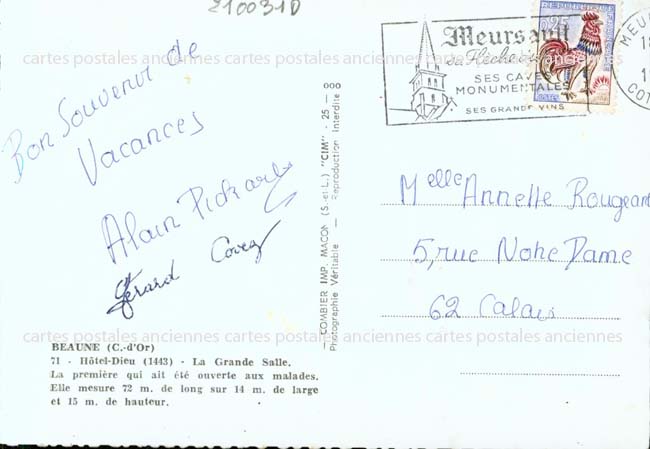 2100310
Meursault
sa Flèche
SES CAVES
MONUMENTALES
SES GRANDS VINS
0,25
cartes postales anciennes cartes postales anciennes cartes postales anciennes
Bon Souvenir de
Vacances
Alain
Gérard
000
— COMBIER IMP. MACON (S.-et-L.) "CIM" - 25 —
Photographie Véritable — Reproduction Interdite
Melle Annette Rougeant
5, rue Notre Dame
62 Calais
cartes postales anciennes cartes postales anciennes cartes postales anciennes
BEAUNE (C.-d'Or)
71 - Hôtel-Dieu (1443) - La Grande Salle.
La première qui ait été ouverte aux malades.
Elle mesure 72 m. de long sur 14 m. de large
et 15 m. de hauteur.